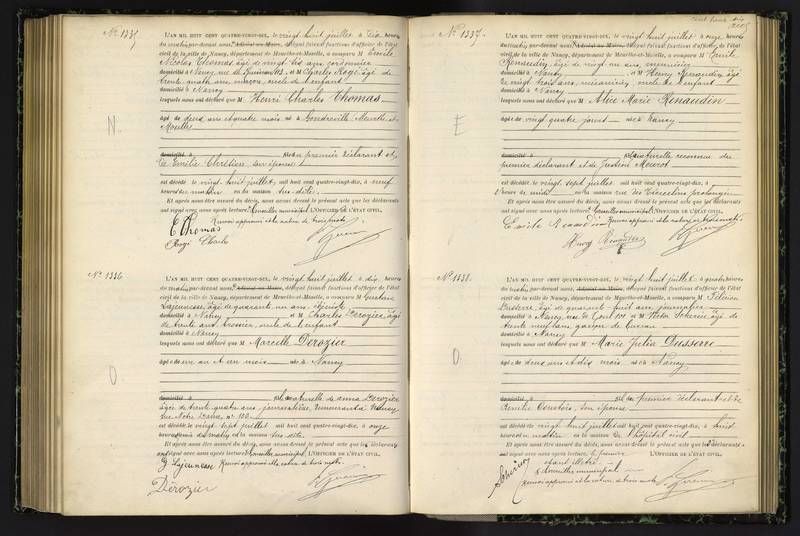 No 1335
L'AN MIL HUIT CENT QUATRE-VINGT-DIX, le vingt huit juillet à dix heures
du matin par-devant nous, Adjoint au Maire, délégué faisant fonctions d'officier de l'état
civil de la ville de Nancy, département de Meurthe-et-Moselle, a comparu M Emile
Nicolas Thomas, âgé de vingt six ans, cordonnier
domicilié à Nancy, rue de et M Charles Rogé, âgé de
trente quatre ans, maçon, oncle de l'enfant
domicilié à Nancy
lesquels nous ont déclaré que M Henri Charles Thomas
âgé de deux ans et quatre mois né à Gondreville, Meurthe et
Moselle
N.
domicilié à fils du premier déclarant et
de Emilie Chrétien, son épouse
est décédé le vingt huit juillet, mil huit cent quatre-vingt-dix, à neuf
heures du matin en la maison sus-dite.
Et après nous être assuré du décès, avons dressé le présent acte que les déclarants
ont signé avec nous après lecture. Conseiller municipal L'OFFICIER DE L'ÉTAT CIVIL,
Renvoi approuvé et la rature de trois mots
E Thomas
Rogé Charles
No 1336
L'AN MIL HUIT CENT QUATRE-VINGT-DIX, le vingt huit juillet à dix heures
du matin par-devant nous, Adjoint au Maire, délégué faisant fonctions d'officier de l'état
civil de la ville de Nancy, département de Meurthe-et-Moselle, a comparu M Gustave
Lajeunesse, âgé de quarante un ans, ébéniste
domicilié à Nancy et M Charles Derozier, âgé
de trente ans, brossier, oncle de l'enfant
domicilié à Nancy
lesquels nous ont déclaré que M Marcelle Derozier
âgée de un an et un mois née à Nancy
O
domicilié à fille naturelle de Anna Derozier
âgée de trente quatre ans, journalière, demeurant à Nancy
rue Notre Dame, n° 100
est décédée le vingt sept juillet mil huit cent quatre-vingt-dix, à onze
heures du matin en la maison sus dite.
Et après nous être assuré du décès, avons dressé le présent acte que les déclarants
ont signé avec nous après lecture. Conseiller municipal L'OFFICIER DE L'ÉTAT CIVIL,
Renvoi approuvé et la rature de trois mots
G Lajeunesse
Dérozier
No 1337.
L'AN MIL HUIT CENT QUATRE-VINGT-DIX, le vingt huit juillet à onze heures
du matin, par-devant nous, Adjoint au Maire, délégué faisant fonctions d'officier de l'état
civil de la ville de Nancy, département de Meurthe-et-Moselle, a comparu M Emile
Renaudin, âgé de vingt un ans, menuisier
domicilié à Nancy et M Henry Renaudin, âgé
de vingt trois ans, menuisier, oncle de l'enfant
domicilié à Nancy
lesquels nous ont déclaré que M Alice Marie Renaudin
âgée de vingt quatre jours née à Nancy
E
domicilié à fille naturelle reconnue du
premier déclarant et de Justine Mourot
est décédée le vingt sept juillet mil huit cent quatre-vingt-dix, à
heures de midi en la maison rue des Tiercelins prolongée
Et après nous être assuré du décès, avons dressé le présent acte que les déclarants
ont signé avec nous après lecture. Conseiller municipal L'OFFICIER DE L'ÉTAT CIVIL,
Renvoi approuvé et la rature de trois mots
Henry Renaudin
No 1338.
L'AN MIL HUIT CENT QUATRE-VINGT-DIX, le vingt huit juillet à quatre heures
du par-devant nous, Adjoint au Maire, délégué faisant fonctions d'officier de l'état
civil de la ville de Nancy, département de Meurthe-et-Moselle, a comparu M Félicien
Dusserre, âgé de quarante huit ans, journalier
domicilié à Nancy, rue de Toul 101 et M Victor âgé de
trente neuf ans, garçon de bureau
domicilié à Nancy
lesquels nous ont déclaré que M Marie Julia Dusserre
âgée de deux ans et dix mois née à Nancy
O
domicilié à fille du premier déclarant et de
son épouse
est décédée le vingt huit juillet mil huit cent quatre-vingt-dix, à huit
heures du matin en la maison de l'hôpital civil
Et après nous être assuré du décès, avons dressé le présent acte que les déclarants
ont signé avec nous après lecture, le premier L'OFFICIER DE L'ÉTAT CIVIL,
étant illettré
Conseiller municipal
Renvoi approuvé et la rature de trois mots